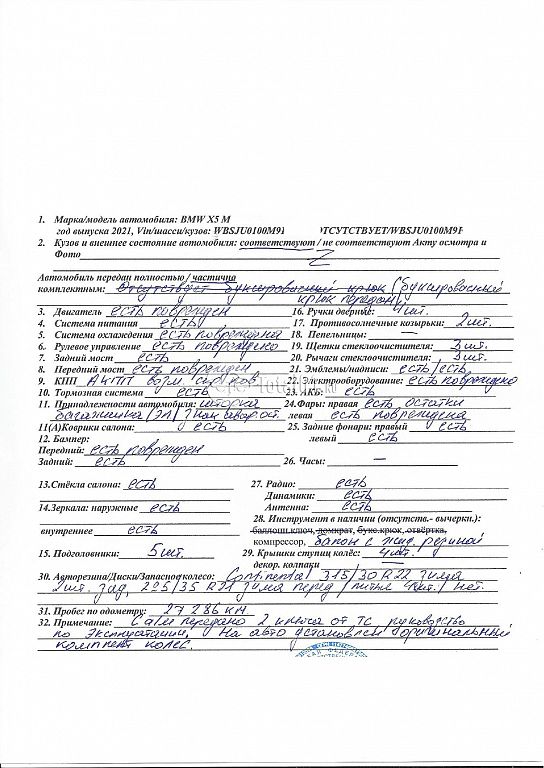 1. Марка/модель автомобиля: BMW X5 M
год выпуска 2021, Vin/шасси/кузов: WBSJU0100M91 ОТСУТСТВУЕТ/WBSJU0100M91
2. Кузов и внешнее состояние автомобиля: соответствуют / не соответствуют Акту осмотра и
Фото
Автомобиль передан полностью / частично
комплектным: Отсутствует буксировочный крюк (буксировочный
крюк передан)
3. Двигатель есть поврежден 16. Ручки дверные: 4 шт.
4. Система питания есть 17. Противосолнечные козырьки: 2 шт.
5. Система охлаждения есть повреждена 18. Пепельницы: —
6. Рулевое управление есть повреждено 19. Щетки стеклоочистителя: 3 шт.
7. Задний мост есть 20. Рычаги стеклоочистителя: 3 шт.
8. Передний мост есть поврежден 21. Эмблемы/надписи: есть/есть
9. КПП АКПП 22. Электрооборудование: есть повреждено
10. Тормозная система есть 23. АКБ: есть
11. Принадлежности автомобиля: шторка 24. Фары: правая есть остатки
багажника /ЭА/ Знак авар. ост. левая есть повреждена
11(А)Коврики салона: есть 25. Задние фонари: правый есть
12. Бампер: левый есть
Передний: есть поврежден
Задний: есть 26. Часы: —
13.Стёкла салона: есть 27. Радио: есть
Динамики: есть
14.Зеркала: наружные есть Антенна: есть
28. Инструмент в наличии (отсутств.- вычеркн.):
внутреннее есть баллонн.ключ, домкрат, букс.крюк, отвёртка,
компрессор, балон с жид. резиной
15. Подголовники: 5 шт. 29. Крышки ступиц колёс: 4 шт.
декор. колпаки —
30. Авторезина/Диски/Запасное колесо: Continental 315/30 R22 зима
2шт. зад, 295/35 R21 зима перед / литые 4шт. / нет.
31. Пробег по одометру: 27 286 км
32. Примечание: передано 2 ключа от ТС руководство
по эксплуатации. На авто установлен оригинальный
комплект колес.